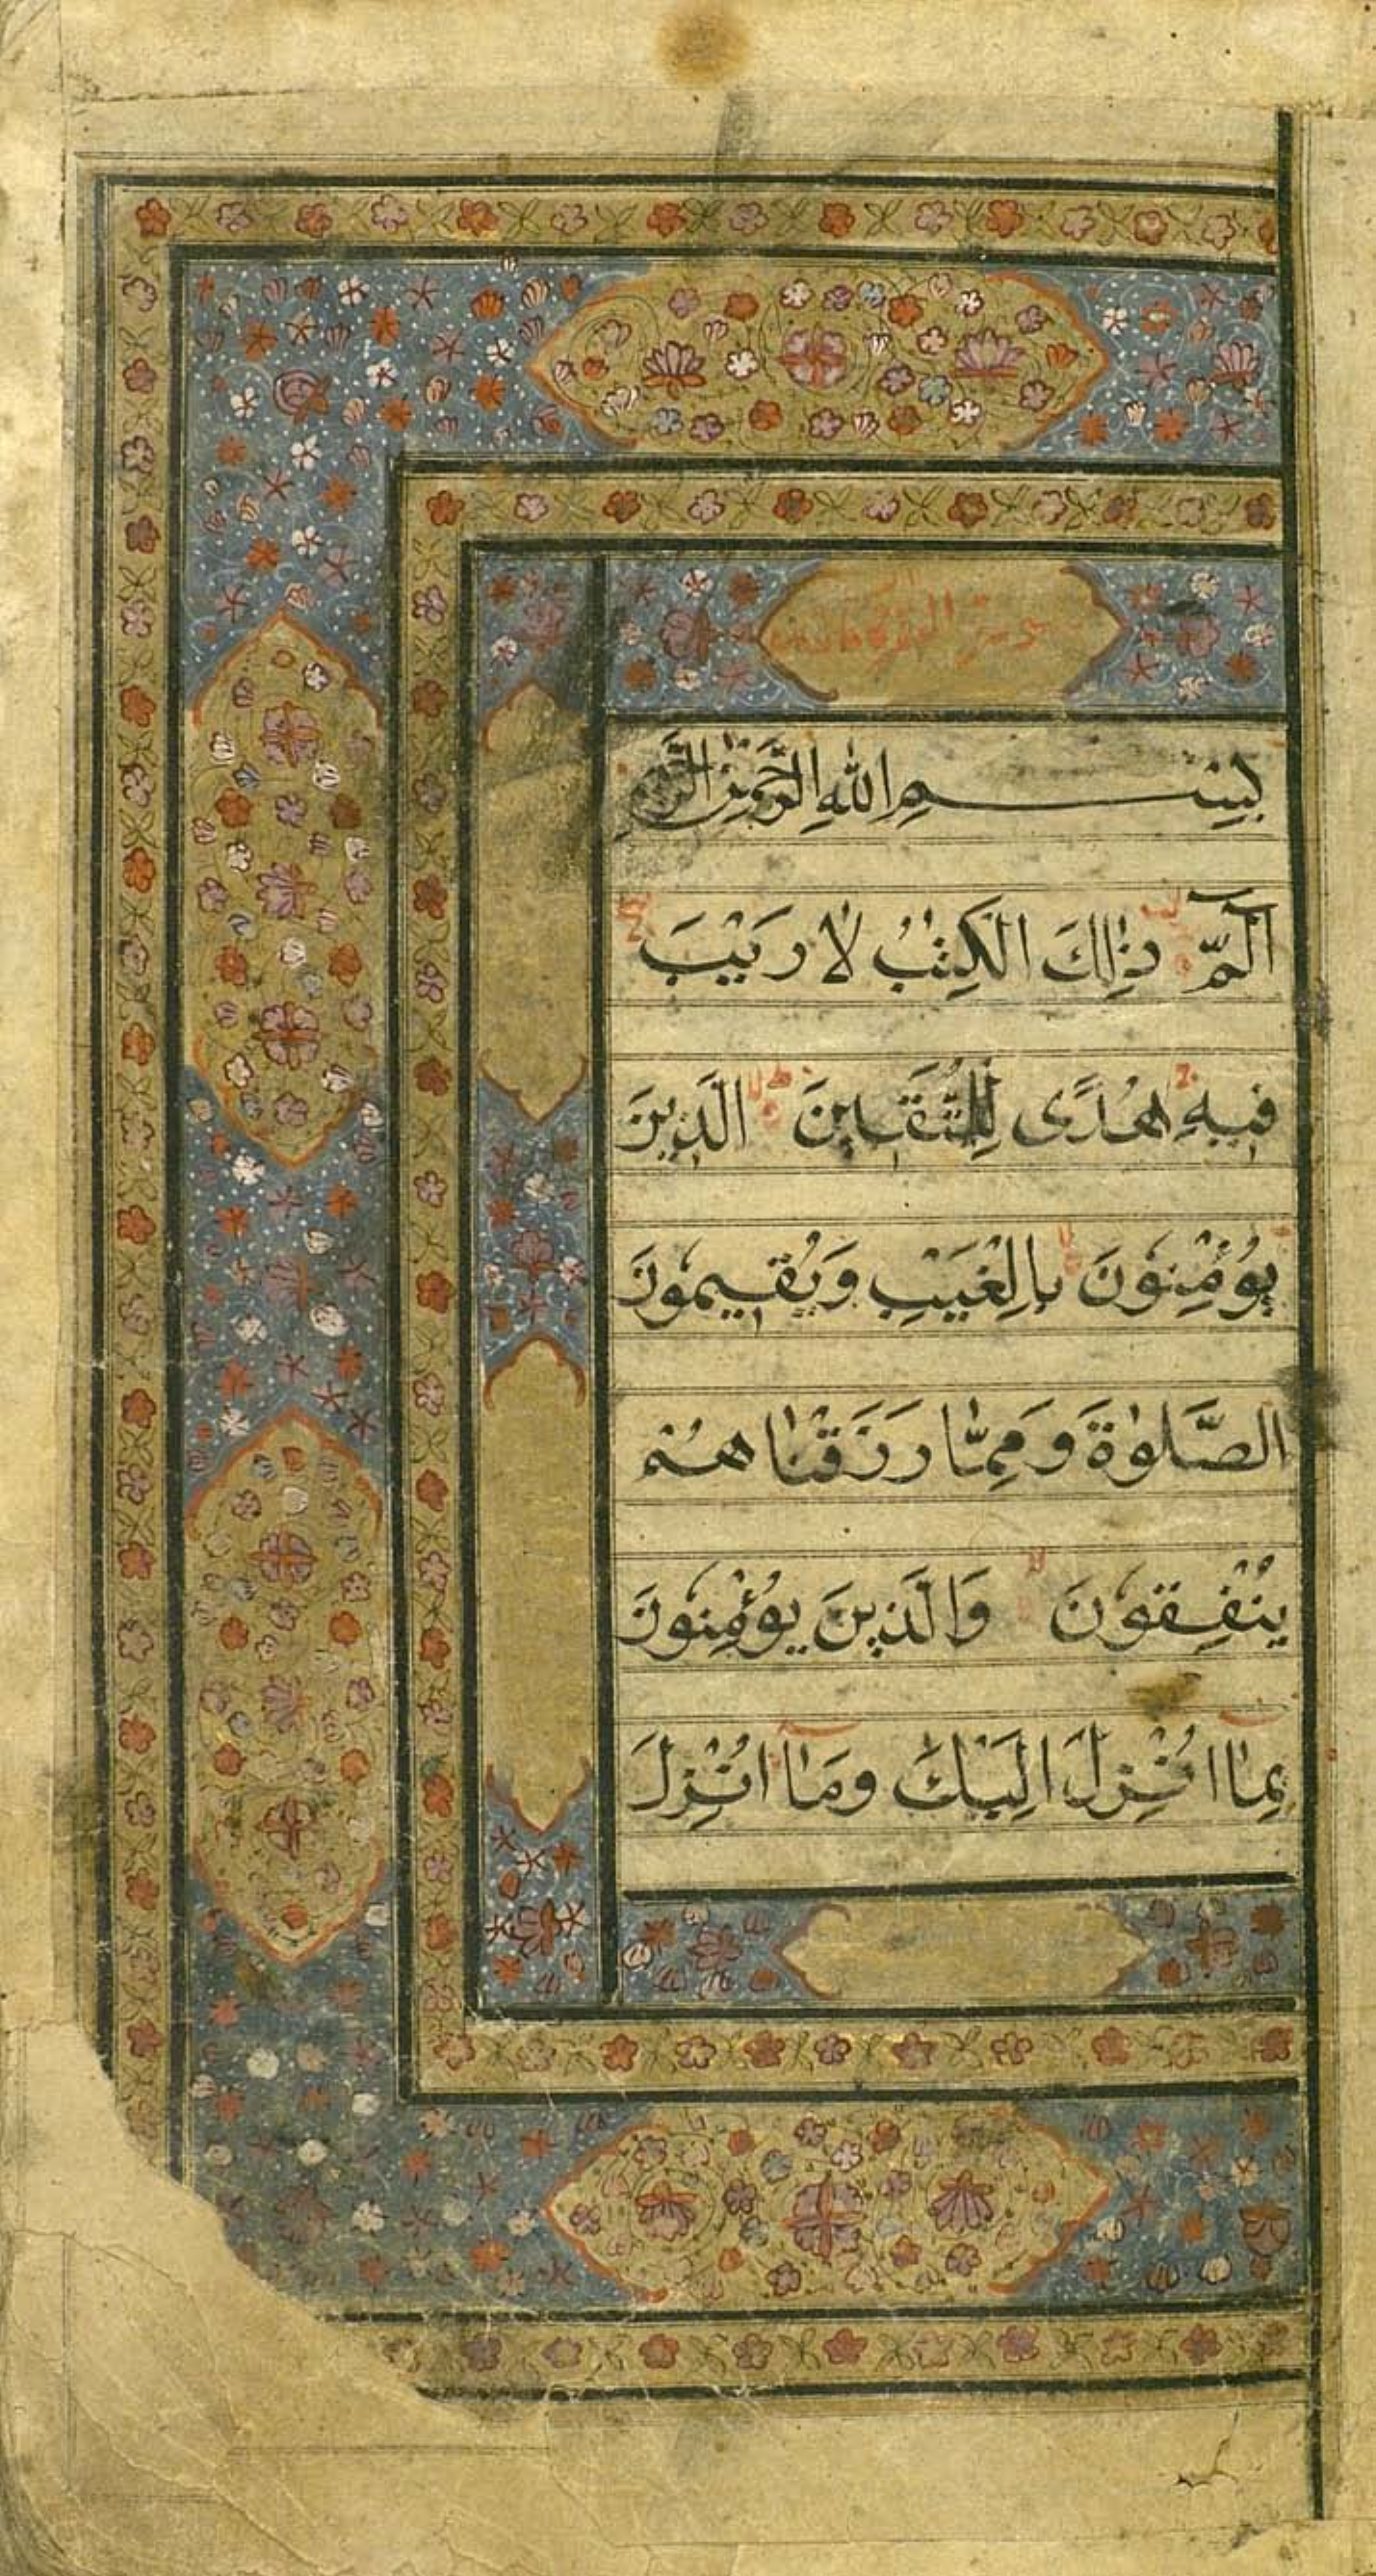 سورة البقرة
بِسْمِ اللهِ الرَّحْمٰنِ الرَّحِيمِ
الٓمّٓ ذٰلِكَ الْكِتٰبُ لَا رَيْبَ
فِيهِ هُدًى لِلْمُتَّقِينَ الَّذِينَ
يُؤْمِنُونَ بِالْغَيْبِ وَيُقِيمُونَ
الصَّلٰوةَ وَمِمَّا رَزَقْنَاهُمْ
يُنْفِقُونَ وَالَّذِينَ يُؤْمِنُونَ
بِمَا اُنْزِلَ اِلَيْكَ وَمَا اُنْزِلَ